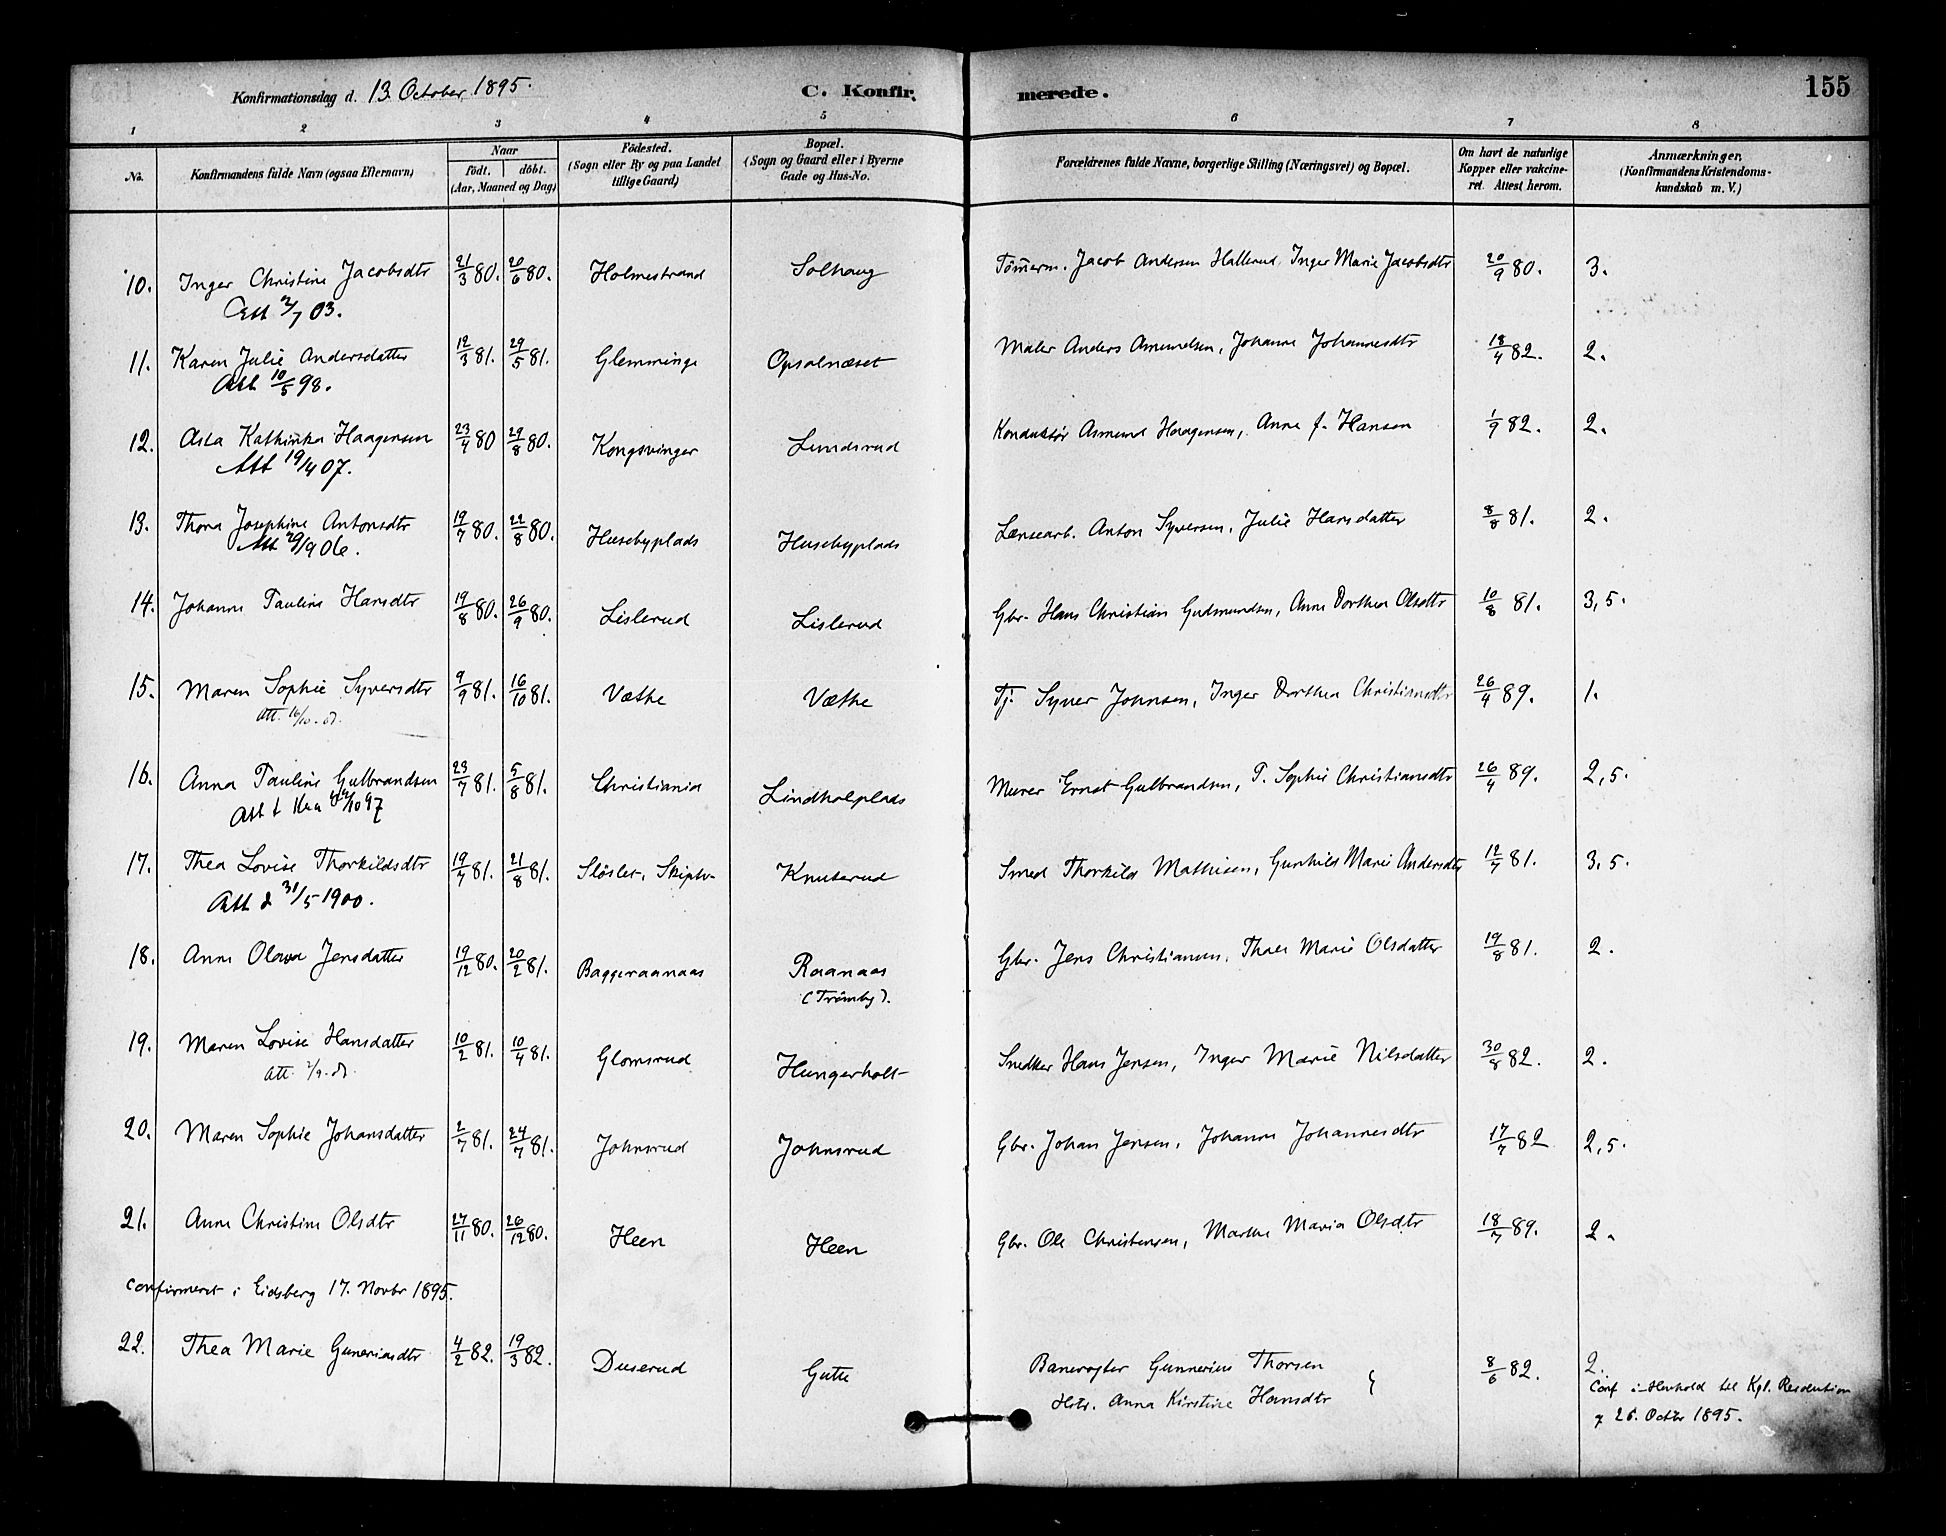 Konfirmationsdag d. 13. October 1895.
C. Konfirmerede.
155
1 2 3 4 5 6 7 8
No.
Konfirmandens fulde Navn (ogsaa Efternavn)
Naar
födt. döbt.
(Aar, Maaned og Dag)
Födested.
(Sogn eller By og paa Landet
tillige Gaard)
Bopæl.
(Sogn og Gaard eller i Byerne
Gade og Hus-No.
Forældrenes fulde Navne, borgerlige Stilling (Næringsvei) og Bopæl.
Om havt de naturlige
Kopper eller vakcine-
ret. Attest herom.
Anmærkninger.
(Konfirmandens Kristendoms-
kundskab m. V.)
10. Inger Christine Jacobsdtr 21/3 80. 20/6 80. Holmestrand Solhaug Tömerm. Jacob Andersen Hallerud, Inger Marie Jacobsdtr 20/9 80. 3.
Att 2/7 03.
11. Karen Julie Andersdatter 12/3 81. 29/5 81. Glemminge Opsalnæset Maler Anders Amundsen, Johanne Johannesdtr 18/4 82. 2.
Att 10/5 98.
12. Asta Kathinka Haagensen 23/4 80 29/8 80. Kongsvinger Lundsrud Konduktör Asmund Haagensen, Anna f. Hansen 1/9 82. 2.
Att 19/4 07.
13. Thora Josephine Antonsdtr 19/7 80. 22/8 80. Husebyplads Husebyplads Lænsearb. Anton Syversen, Julie Hansdatter 8/8 81. 2.
Att 29/9 06.
14. Johanne Pauline Hansdtr 19/8 80. 26/9 80. Lislerud Lislerud Gbr. Hans Christian Gudmundsen, Anne Dorthea Olsdtr 10/8 81. 3,5.
15. Maren Sophie Syversdtr 9/9 81. 16/10 81. Væthe Væthe Tj. Syver Johnsen, Inger Dorthea Christiansdtr 26/4 89. 1.
Att. 16/10. 01.
16. Anna Pauline Gulbrandsen 23/7 81. 5/8 81. Christiania Lindholplads Murer Ernst Gulbrandsen, P. Sophie Christiansdtr 26/4 89. 2,5.
17. Thea Lovise Thorkildsdtr 19/7 81. 21/8 81. Slöslet, Skiptv. Knuterud Smed Thorkild Mathisen, Gunhild Marie Andersdtr 12/7 81. 3,5.
Att d 31/5 1900.
18. Anne Olava Jensdatter 19/12 80. 20/2 81. Baggeraanaas Raanaas Gbr. Jens Christiansen, Thea Marie Olsdatter 19/8 81. 2.
(Trömby).
19. Maren Lovise Hansdatter 10/2 81. 10/4 81. Glomsrud Hungerholt Snedker Hans Jensen, Inger Marie Nilsdatter 30/8 82. 2.
20. Maren Sophie Johansdatter 2/7 81. 24/7 81. Johnsrud Johnsrud Gbr. Johan Jensen, Johanne Johannesdtr 17/7 82 2,5.
21. Anne Christine Olsdtr 27/11 80. 26/12 80. Heen Heen Gbr. Ole Christensen, Marthe Maria Olsdtr 18/7 89. 2.
Confirmeret i Eidsberg 17. Novbr 1895.
22. Thea Marie Guneriusdtr 4/2 82. 19/3 82. Duserud Gutu Banevogter Gunnerius Thorsen 8/6 82. 2.
Hstr. Anna Kirstine Hansdtr
Conf i Henhold til Kgl. Resolution
af 26. Octbr 1895.